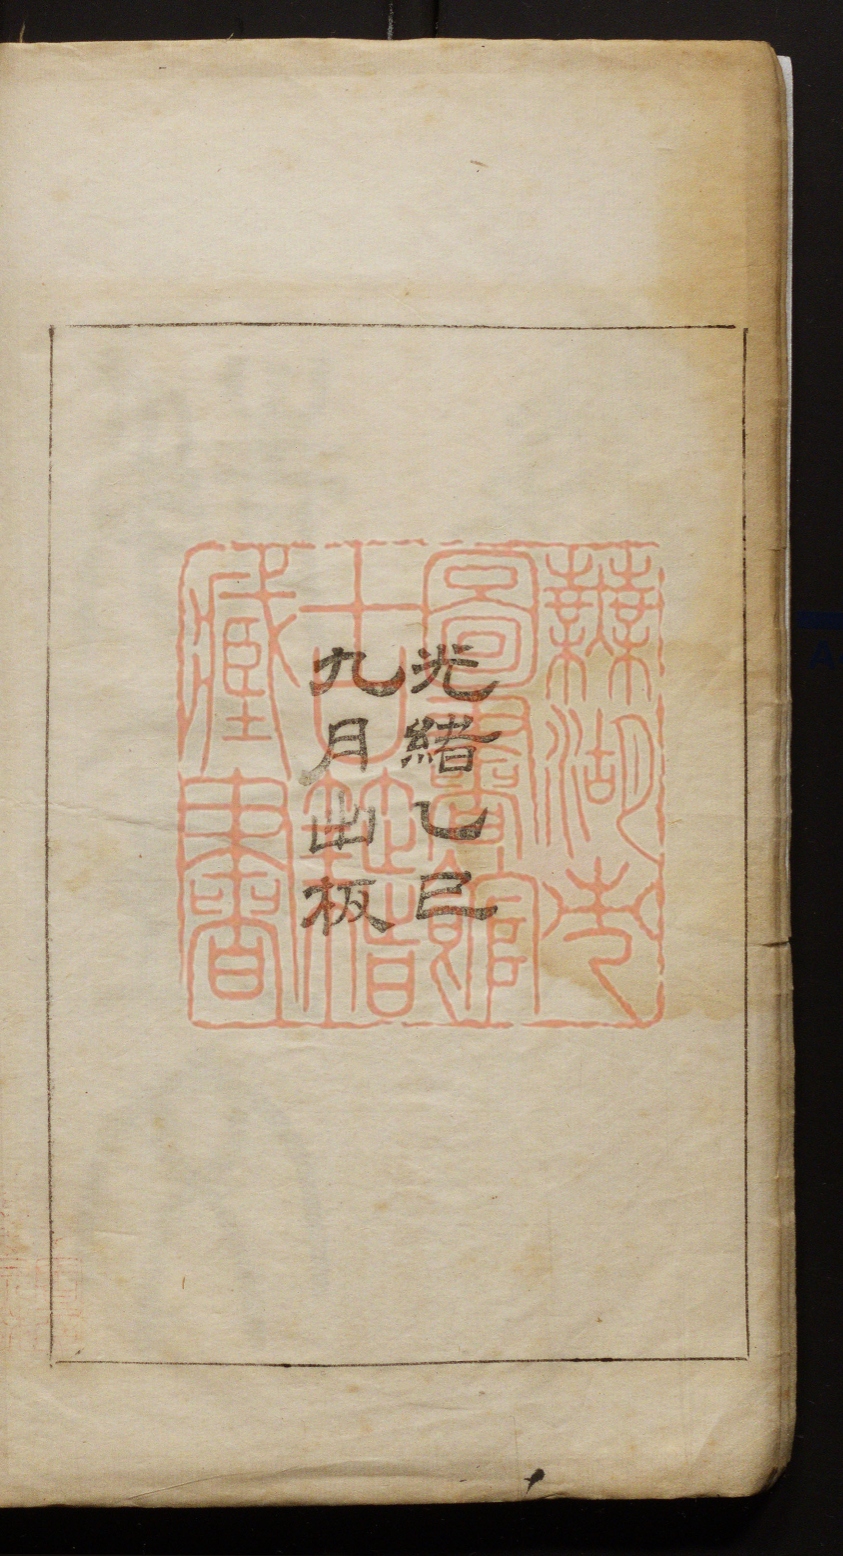 光緒乙巳
九月出板
蕪湖市
圖書館
古籍
藏書